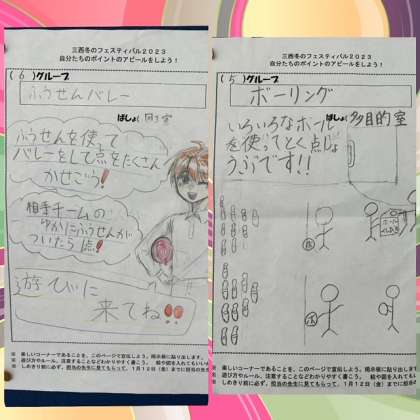 三西冬のフェスティバル2023
自分たちのポイントのアピールをしよう！
(6)グループ
ふうせんバレー
ばしょ(
ふうせんを使って
バレーをして点をたくさん
かせごう!
相手チームの
ゆかにふうせんが
ついたら1点!
遊びに
来てね!!
※ 楽しいコーナーであることを、このページで宣伝しよう。掲示板に貼り出します。
※ 遊び方やルール、注意することなどわかりやすく書こう。
※ しめきり前に必ず、担当の先生に見てもらって、1月12日(金)までに担当の
三西冬のフェスティバル2023
自分たちのポイントのアピールをしよう！
(5)グループ
ボーリング
ばしょ(多目的室
いろいろなボール
を使ってとく点しょ
うぶです!!
※ 楽しいコーナーであることを、このページで宣伝しよう。掲示板に貼り出します。
※ 遊び方やルール、注意することなどわかりやすく書こう。
※ しめきり前に必ず、担当の先生に見てもらって、1月12日(金)までに担